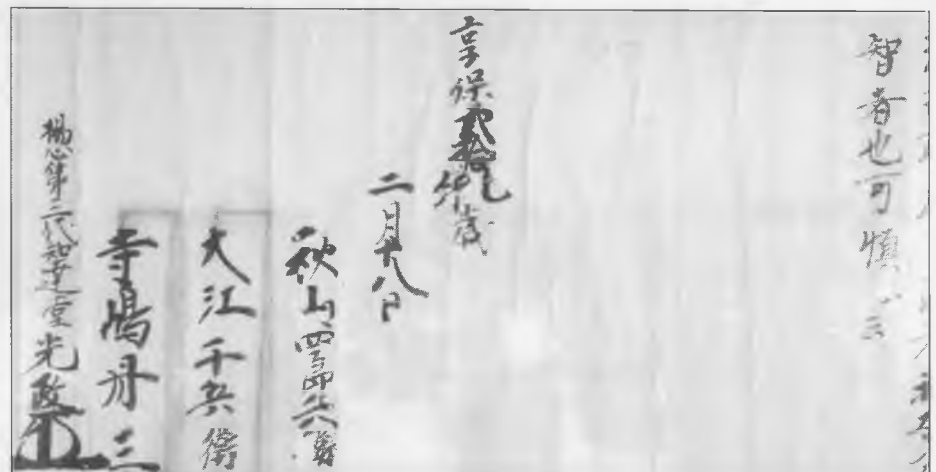 智者也可慎
享保貳拾乙卯歳
二月十八日
秋山四郎兵衛
大江千兵衛
寺嶋丹三
楊心第二代 達堂光政